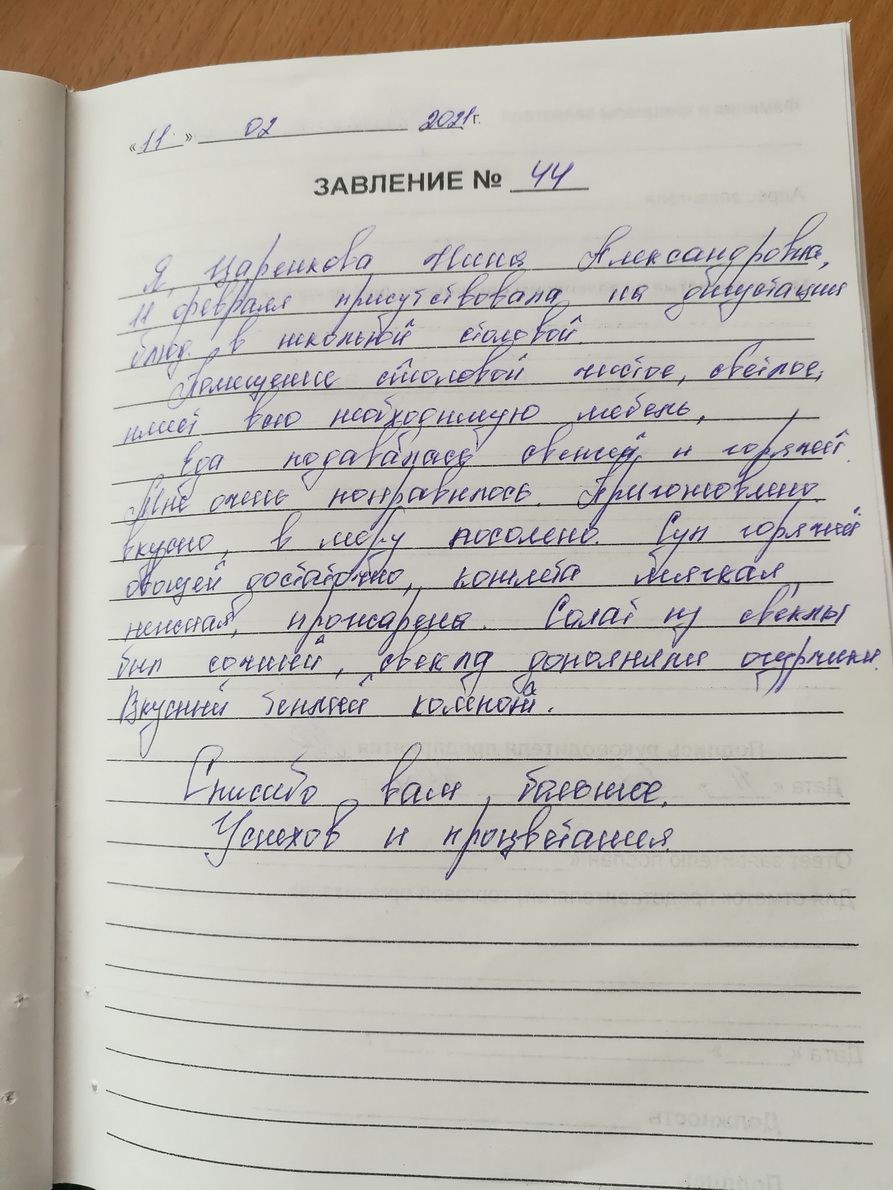 «11» 02 2021г.
ЗАВЛЕНИЕ № 44
Я, Царенкова Нина Александровна,
11 февраля присутствовала на дигустации
блюд в школьной столовой.
Помещение столовой чистое, светлое,
имеет всю необходимую мебель,
Еда подавалась свежей и горячей.
Мне очень понравилось. Приготовлено
вкусно, в меру посолено. Суп горячий
овощей достаточно, котлета мягкая,
нежная, прожарена. Солат из свеклы
был сочный, свеклу дополняли огурчики.
Вкусный теплый компот.
Спасибо вам большое.
Успехов и процветания